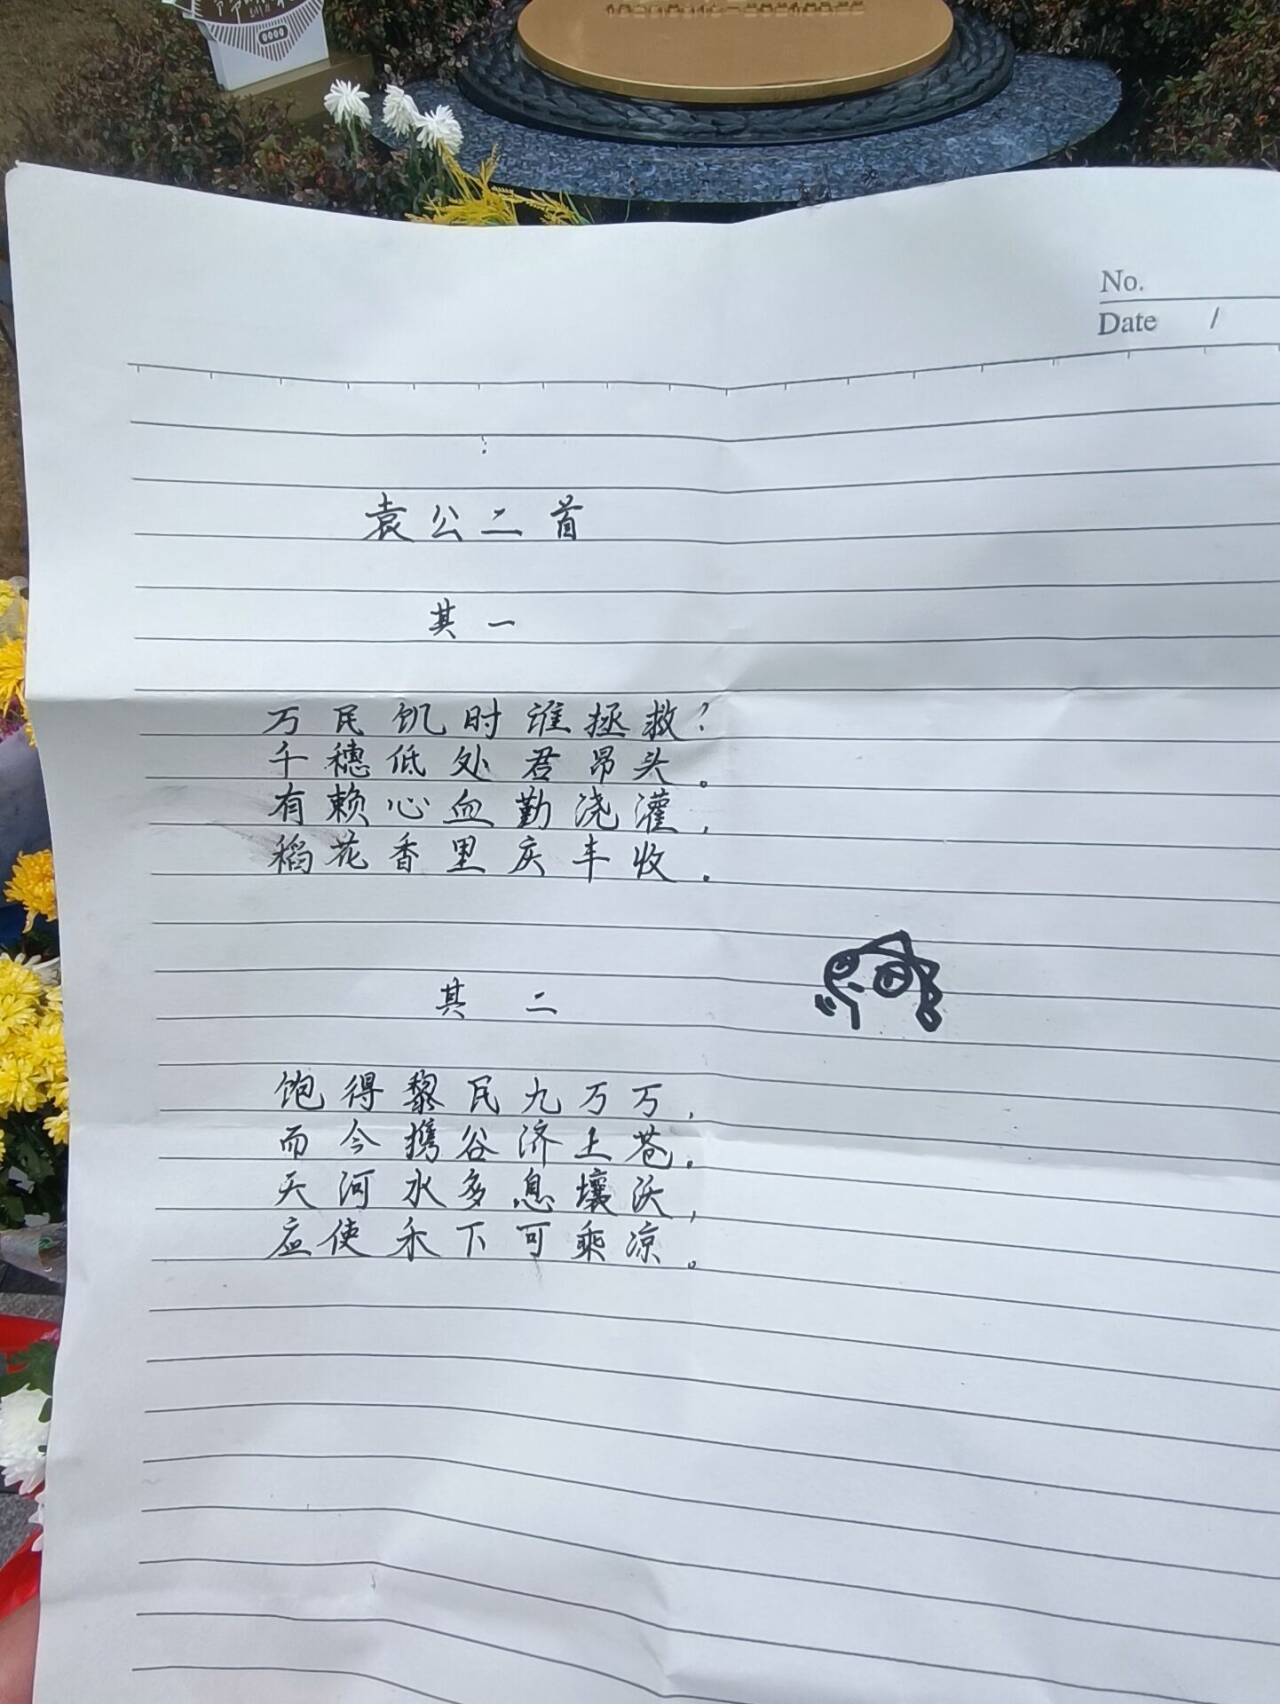 No.
Date /
袁公二首
其一
万民饥时谁拯救?
千穗低处君昂头。
有赖心血勤浇灌,
稻花香里庆丰收.
其二
饱得黎民九万万,
而今携谷济上苍.
天河水多息壤沃,
应使禾下可乘凉。